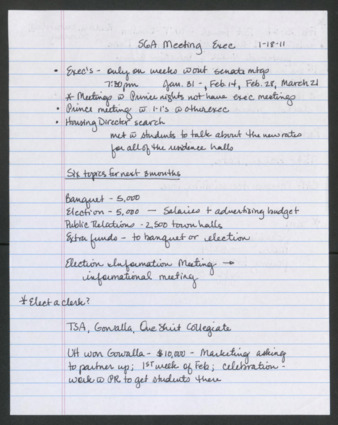 SGA Meeting Exec 1-18-11
• Exec's - only on weeks w/out senate mtgs
7:30pm Jan. 31 -, Feb. 14, Feb. 28, March 21
* Meetings w Prince nights not have exec meetings
• Prince meeting w 1-1's w other exec
• Housing Director search
met w students to talk about the new rates
for all of the residence halls
Six topics for next 3 months
Banquet - 5,000
Election - 5,000 - Salaries + advertising budget
Public Relations - 2,500 town halls
Extra funds - to banquet or election
Election Information Meeting →
informational meeting
* Elect a clerk?
TSA, Gowalla, One Shirt Collegiate
UH won Gowalla - $10,000 - Marketing asking
to partner up; 1ST week of Feb; celebration -
work w PR to get students there